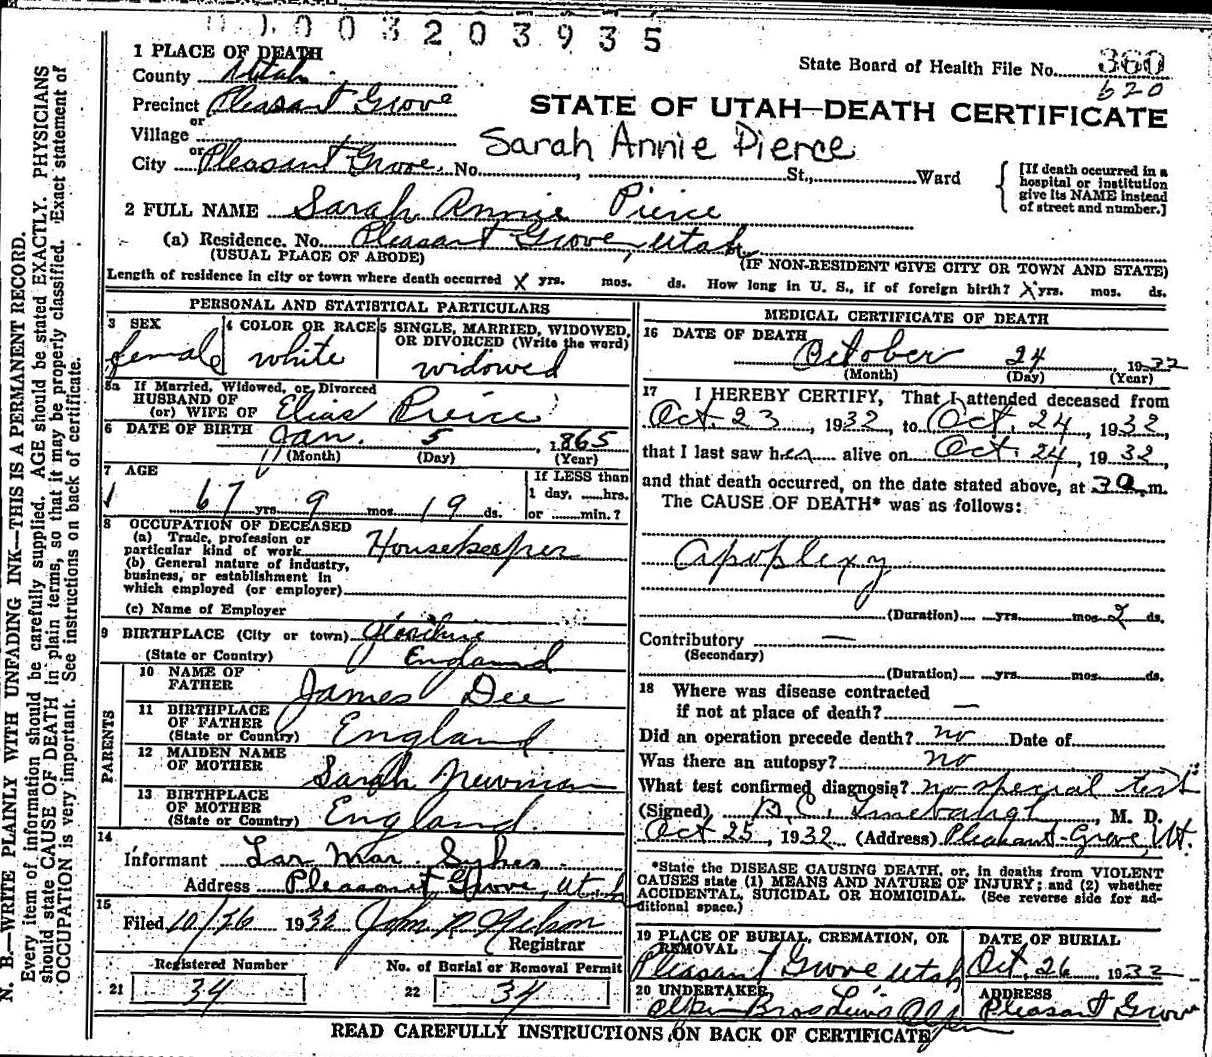 003203935
1 PLACE OF DEATH
State Board of Health File No. 360
620
County Utah
Precinct Pleasant Grove
or
Village
or
City Pleasant Grove, No. , St., Ward
STATE OF UTAH—DEATH CERTIFICATE
Sarah Annie Pierce
[If death occurred in a hospital or institution give its NAME instead of street and number.]
2 FULL NAME Sarah Annie Pierce
(a) Residence. No. Pleasant Grove, Utah
(USUAL PLACE OF ABODE) (IF NON-RESIDENT GIVE CITY OR TOWN AND STATE)
Length of residence in city or town where death occurred X yrs. mos. ds. How long in U. S., if of foreign birth? X yrs. mos. ds.
PERSONAL AND STATISTICAL PARTICULARS
3 SEX 4 COLOR OR RACE 5 SINGLE, MARRIED, WIDOWED, OR DIVORCED (Write the word)
female white widowed
5a If Married, Widowed, or Divorced
HUSBAND OF
(or) WIFE OF Elias Pierce
6 DATE OF BIRTH Jan. 5, 1865
(Month) (Day) (Year)
7 AGE
67 yrs. 9 mos. 19 ds.
If LESS than
1 day, hrs.
or min.?
8 OCCUPATION OF DECEASED
(a) Trade, profession or
particular kind of work Housekeeper
(b) General nature of industry,
business, or establishment in
which employed (or employer)
(c) Name of Employer
9 BIRTHPLACE (City or town)
(State or Country) England
PARENTS
10 NAME OF
FATHER James Dee
11 BIRTHPLACE
OF FATHER
(State or Country) England
12 MAIDEN NAME
OF MOTHER Sarah Newman
13 BIRTHPLACE
OF MOTHER
(State or Country) England.
14
Informant La Mar Sykes
Address Pleasant Grove, Utah
15
Filed 10/26 1932 John R Nelson
Registrar
Registered Number No. of Burial or Removal Permit
21 34 22 34
MEDICAL CERTIFICATE OF DEATH
16 DATE OF DEATH October 24 1932
(Month) (Day) (Year)
17 I HEREBY CERTIFY, That I attended deceased from
Oct. 23, 1932, to Oct. 24, 1932,
that I last saw her alive on Oct. 24, 1932,
and that death occurred, on the date stated above, at 3 a.m.
The CAUSE OF DEATH* was as follows:
Apoplexy
(Duration) yrs. mos. 2 ds.
Contributory —
(Secondary)
(Duration) yrs. mos. ds.
18 Where was disease contracted
if not at place of death? —
Did an operation precede death? no Date of
Was there an autopsy? no
What test confirmed diagnosis? no special test
(Signed) B. C. Linebaugh, M. D.
Oct 25, 1932 (Address) Pleasant Grove, Ut.
*State the DISEASE CAUSING DEATH, or, in deaths from VIOLENT
CAUSES state (1) MEANS AND NATURE OF INJURY; and (2) whether
ACCIDENTAL, SUICIDAL OR HOMICIDAL. (See reverse side for ad-
ditional space.)
19 PLACE OF BURIAL, CREMATION, OR
REMOVAL
Pleasant Grove Utah
DATE OF BURIAL
Oct. 26 1932
20 UNDERTAKER
Bros
ADDRESS
Pleasant Grove
READ CAREFULLY INSTRUCTIONS ON BACK OF CERTIFICATE
N. B.—WRITE PLAINLY WITH UNFADING INK—THIS IS A PERMANENT RECORD.
Every item of information should be carefully supplied. AGE should be stated EXACTLY. PHYSICIANS
should state CAUSE OF DEATH in plain terms, so that it may be properly classified. Exact statement of
OCCUPATION is very important. See instructions on back of certificate.